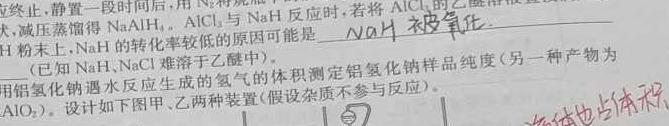 应终止,静置一段时间后,用 N₂
状,减压蒸馏得 NaAlH₄。AlCl₃ 与 NaH 反应时,若将 AlCl₃ 的乙醚溶液
H 粉末上,NaH 的转化率较低的原因可能是 NaH 被氧化.
(已知 NaH、NaCl 难溶于乙醚中)。
用铝氢化钠遇水反应生成的氢气的体积测定铝氢化钠样品纯度(另一种产物为
AlO₂)。设计如下图甲、乙两种装置(假设杂质不参与反应)。
体也占体积